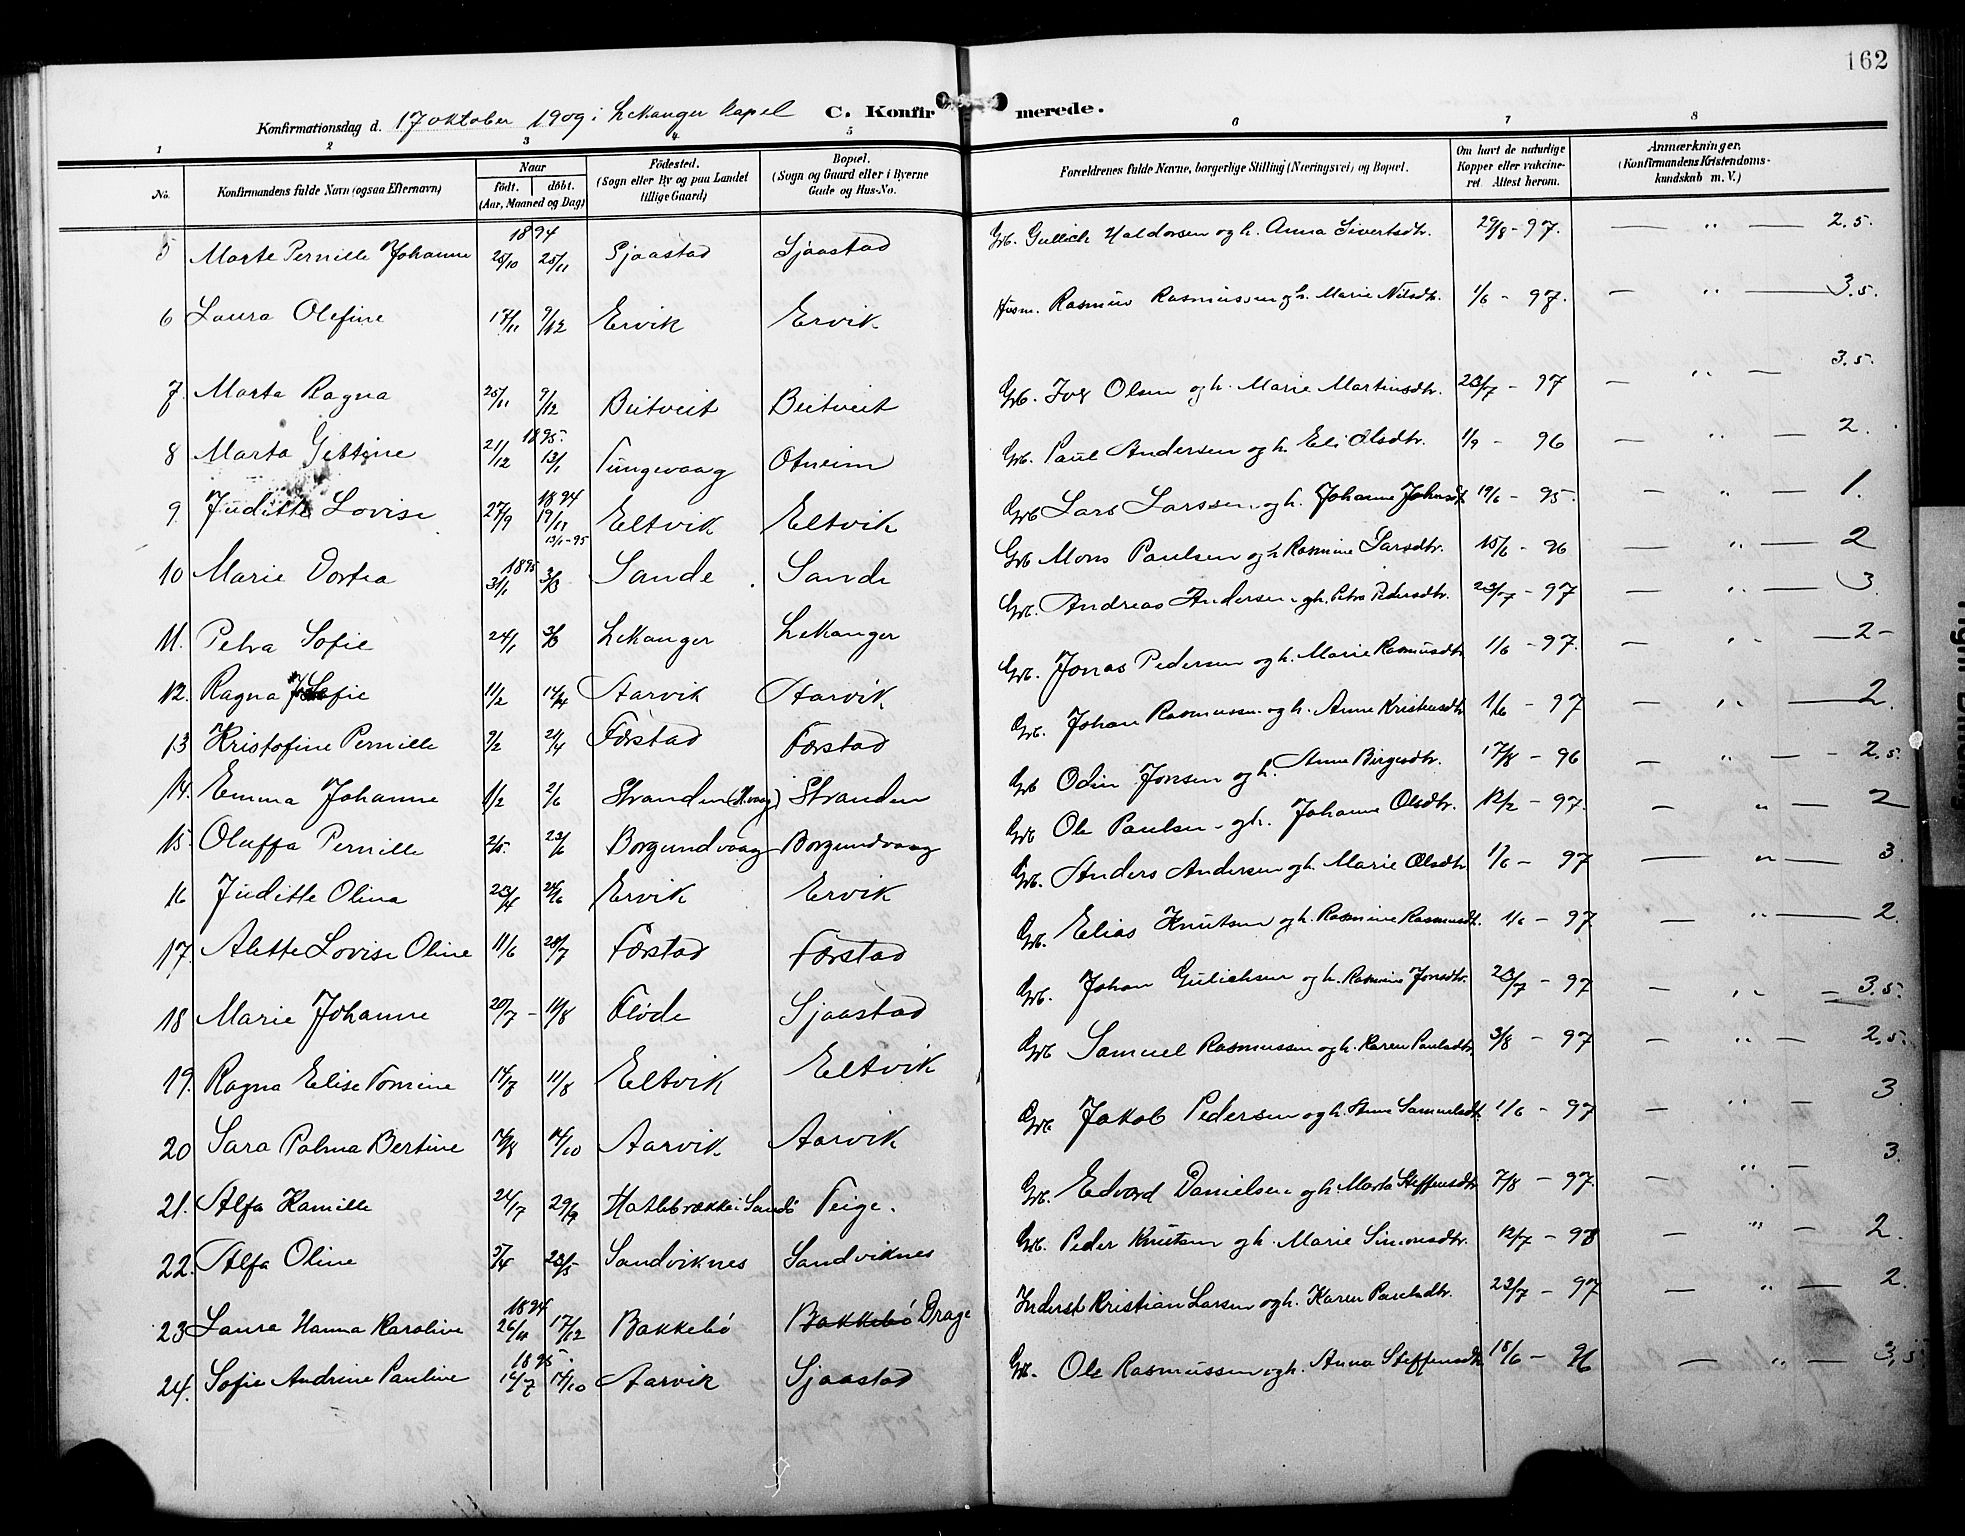 162
Konfirmationsdag d. 17 oktober 1909 i Lekanger kapel C. Konfirmerede.
1 2 3 4 5 6 7 8
No. Konfirmandens fulde Navn (ogsaa Efternavn) Naar født. døbt. (Aar, Maaned og Dag) Fødested. (Sogn eller By og paa Landet tillige Gaard) Bopæl. (Sogn og Gaard eller i Byerne Gade og Hus-No. Forældrenes fulde Navne, borgerlige Stilling (Næringsvei) og Bopæl. Om havt de naturlige Kopper eller vakcineret. Attest herom. Anmærkninger. (Konfirmandens Kristendomskundskab m. V.)
5 Marte Pernille Johanne 1894 25/10 25/11 Sjaastad Sjaastad Grb. Gullich Haldorsen og h. Anna Sivertsdtr. 29/8-97. — " — 2.5.
6 Laura Olefine 17/11 9/12 Ervik Ervik Husm. Rasmus Rasmussen og h. Marie Nilsdtr. 1/6 - 97. — " — 3.5.
7. Marta Ragna 25/11 9/12 Beitveit Beitveit Grb. Olsen og h. Marie Martinusdtr. 23/7 - 97 — " — 3.5.
8 Marta Gittine 21/12 1895 13/1 Tungevaag Otneim Grb. Paul Andersen og h. Eli Olsdtr. 1/9 - 96 — " — 2.
9 Juditte Lovise 27/9 1894 19/11 13/1-95 Eltvik Eltvik Grb Lars Larssen og h. Johanne Johnsdt 19/6 - 95. — " — 1.
10 Marie Dortea 1895 31/1 3/3 Sande Sande Grb Mons Paulsen og h Rasmine Larsdtr. 15/6 - 96 — " — 2
11. Petra Sofie 24/1 3/3 Lekanger Lekanger Grb. Andreas Andersen og h. Petra Pedersdtr. 23/7 - 97 — " — 3.
12. Ragna Sofie 11/2 14/4 Aarvik Aarvik Grb. Jonas Pedersen og h. Marie Rasmusdtr 1/6 - 97. — " — 2-
13 Kristofine Pernille 9/2 21/4 Færstad Færstad Grb. Johan Rasmussen og h. Anne Kristensdtr 1/6 - 97 — " — 2.
14. Emma Johanne 1/2 2/6 Stranden Stranden Grb Odin Jonsen og h. Anne Birgesdtr. 17/8 - 96 — " — 2.5.
15. Oluffa Pernille 2/5. 23/6 Borgundvaag Borgundvaag Grb Ole Paulsen og h. Johanne Olsdtr. 12/2 - 97. — " — 2
16 Juditte Olina 23/4 24/6 Ervik Ervik Grb. Anders Andersen og h. Marie Olsdtr 1/6 - 97 — " — 3.
17. Alette Lovise Oline 11/6 28/7 Færstad Færstad Grb. Elias Knutsen og h. Rasmine Rasmusdt. 1/6 - 97. — " — 2.
18 Marie Johanne 20/7 - 11/8 Fløde Sjaastad Grb. Johan Gulichsen og h. Rasmine Jonsdtr. 23/7 - 97 — " — 3.5.
19. Ragna Elise Tomine 14/7 11/8 Eltvik Eltvik Grb Samuel Rasmussen og h. Karen Paulsdtr. 3/8 - 97 — " — 2.5.
20 Sara Palma Bertine 14/8 14/10 Aarvik Aarvik Grb Jakob Pedersen og h. Anne Samuelsdt. 1/6 - 97 — " — 3.
21. Alfa Kamille 24/7 29/9 Hatlebrække i Sande Teige. Grb. Edvard Danielsen og h. Marta Steffensdtr 7/8 - 97. — " — 3.
22. Alfa Oline 5/4 23/5 Sandviknes Sandviknes Grb. Peder Knutsen og h. Marie Simonsdtr. 12/7 - 98 — " — 2.
23 Laura Hanna Karoline 1894 26/11 17/12 Bakkebø Bakkebø Drage Inderst Kristian Larsen og h. Karen Paulsdtr. 22/7 - 97 — " — 2.
24. Sofie Andrine Pauline 1895. 14/7 14/10 Aarvik Sjaastad Grb. Ole Rasmussen og h. Anna Steffensdtr 18/6 - 96 — " — 3,5